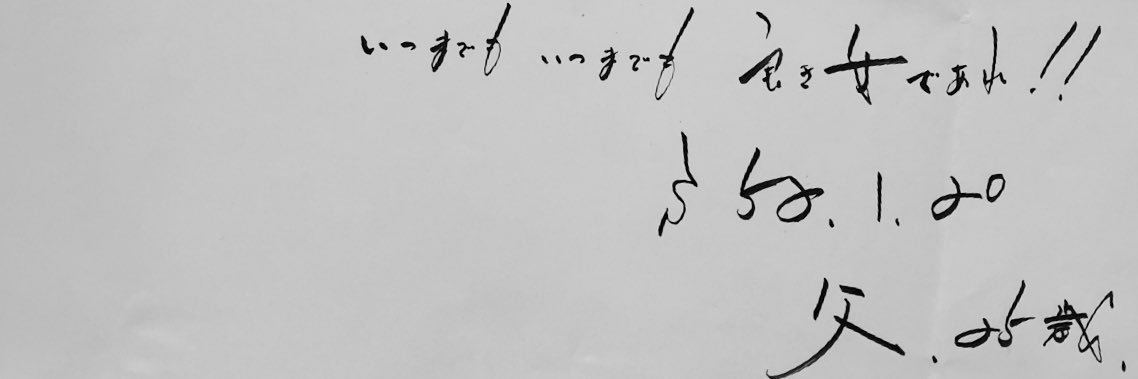 いつまでも いつまでも 良き女であれ!!
S 52.1.20
父.25歳.